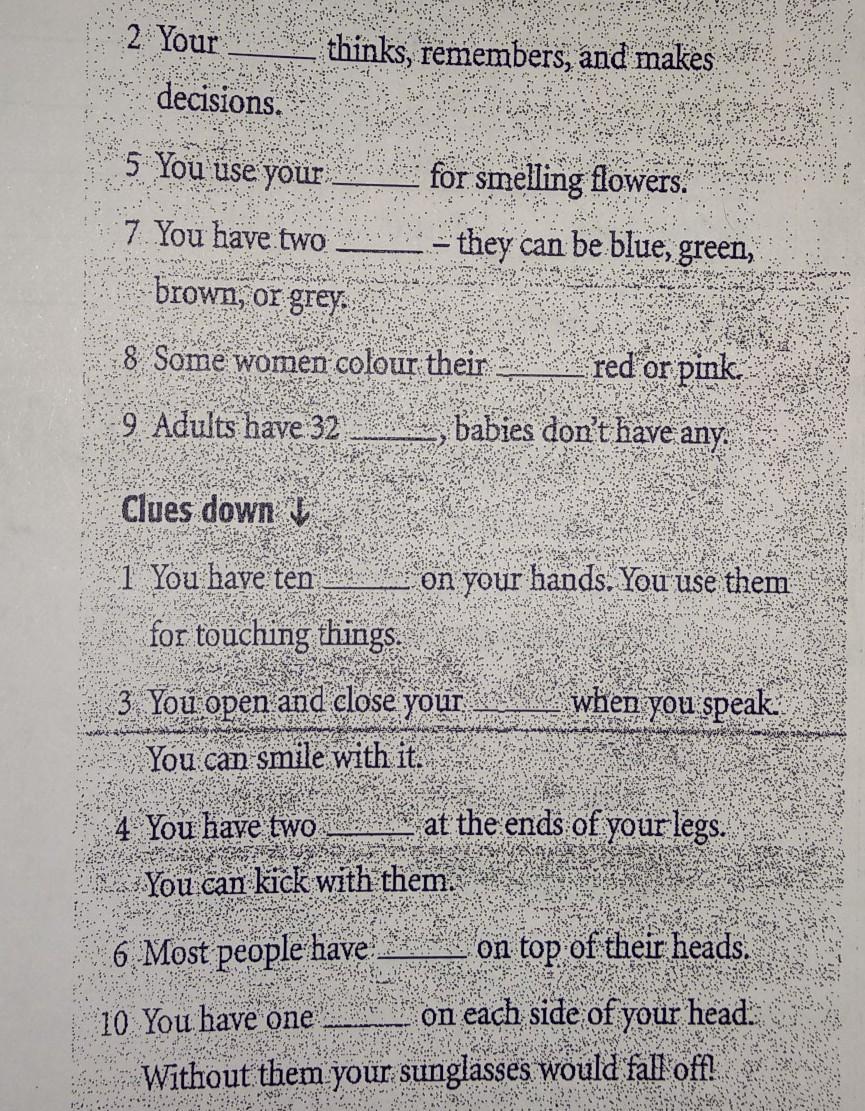 2 Your ______ thinks, remembers, and makes
decisions.
5 You use your ______ for smelling flowers.
7 You have two ______ – they can be blue, green,
brown, or grey.
8 Some women colour their ______ red or pink.
9 Adults have 32 ______, babies don't have any.
Clues down ↓
1 You have ten ______ on your hands. You use them
for touching things.
3 You open and close your ______ when you speak.
You can smile with it.
4 You have two ______ at the ends of your legs.
You can kick with them.
6 Most people have ______ on top of their heads.
10 You have one ______ on each side of your head.
Without them your sunglasses would fall off!